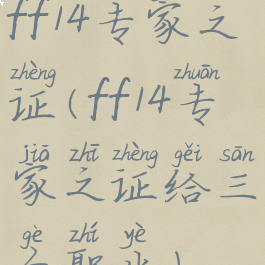 ff14专家之
zhèng zhuān
证(ff14专
jiā zhī zhèng gěi sān
家之证给三
gè zhí yè
个职业)